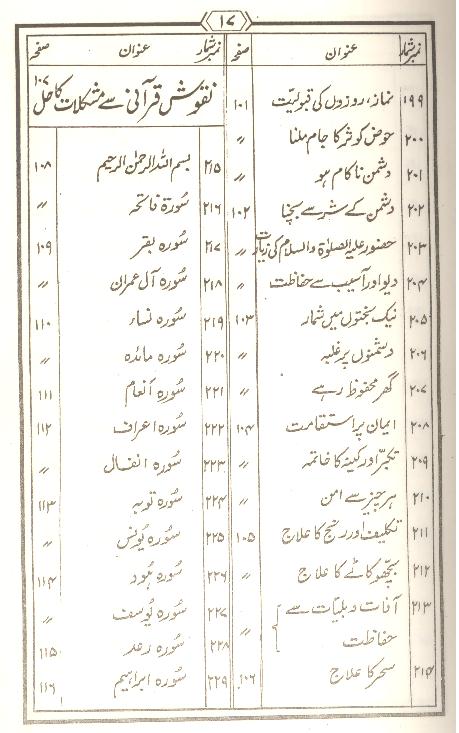 ۱۷
نمبر شمار عنوان صفحہ
۱۹۹ نماز، روزوں کی قبولیت ۱۰۱
۲۰۰ حوض کوثر کا جام ملنا ״
۲۰۱ دشمن ناکام ہو ״
۲۰۲ دشمن کے شر سے بچنا ۱۰۲
۲۰۳ حضور علیہ الصلوٰۃ والسلام کی زیارت ״
۲۰۴ دیو اور آسیب سے حفاظت ״
۲۰۵ نیک بختوں میں شمار ۱۰۳
۲۰۶ دشمنوں پر غلبہ ״
۲۰۷ گھر محفوظ رہے ״
۲۰۸ ایمان پر استقامت ۱۰۴
۲۰۹ تکبّر اور کینہ کا خاتمہ ״
۲۱۰ ہر چیز سے امن ״
۲۱۱ تکلیف اور رنج کا علاج ۱۰۵
۲۱۲ بچھو کاٹے کا علاج ״
۲۱۳ آفات و بلیّات سے
حفاظت ״
۲۱۴ سحر کا علاج ۱۰۶
نمبر شمار عنوان صفحہ
نقوش قرآنی سے مشکلات کا حل ۱۰۷
۲۱۵ بسم اللہ الرحمٰن الرحیم ۱۰۸
۲۱۶ سُورۃ فاتحہ ״
۲۱۷ سُورہ بقر ۱۰۹
۲۱۸ سُورہ آل عمران ״
۲۱۹ سُورہ نساء ۱۱۰
۲۲۰ سُورہ مائدہ ״
۲۲۱ سُورہ اَنعام ۱۱۱
۲۲۲ سُورہ اعراف ۱۱۲
۲۲۳ سُورہ انفال ״
۲۲۴ سُورہ توبہ ۱۱۳
۲۲۵ سُورہ یُونس ״
۲۲۶ سُورہ ہُود ۱۱۴
۲۲۷ سُورہ یُوسف ״
۲۲۸ سُورہ رعد ۱۱۵
۲۲۹ سُورہ ابراہیم ۱۱۶